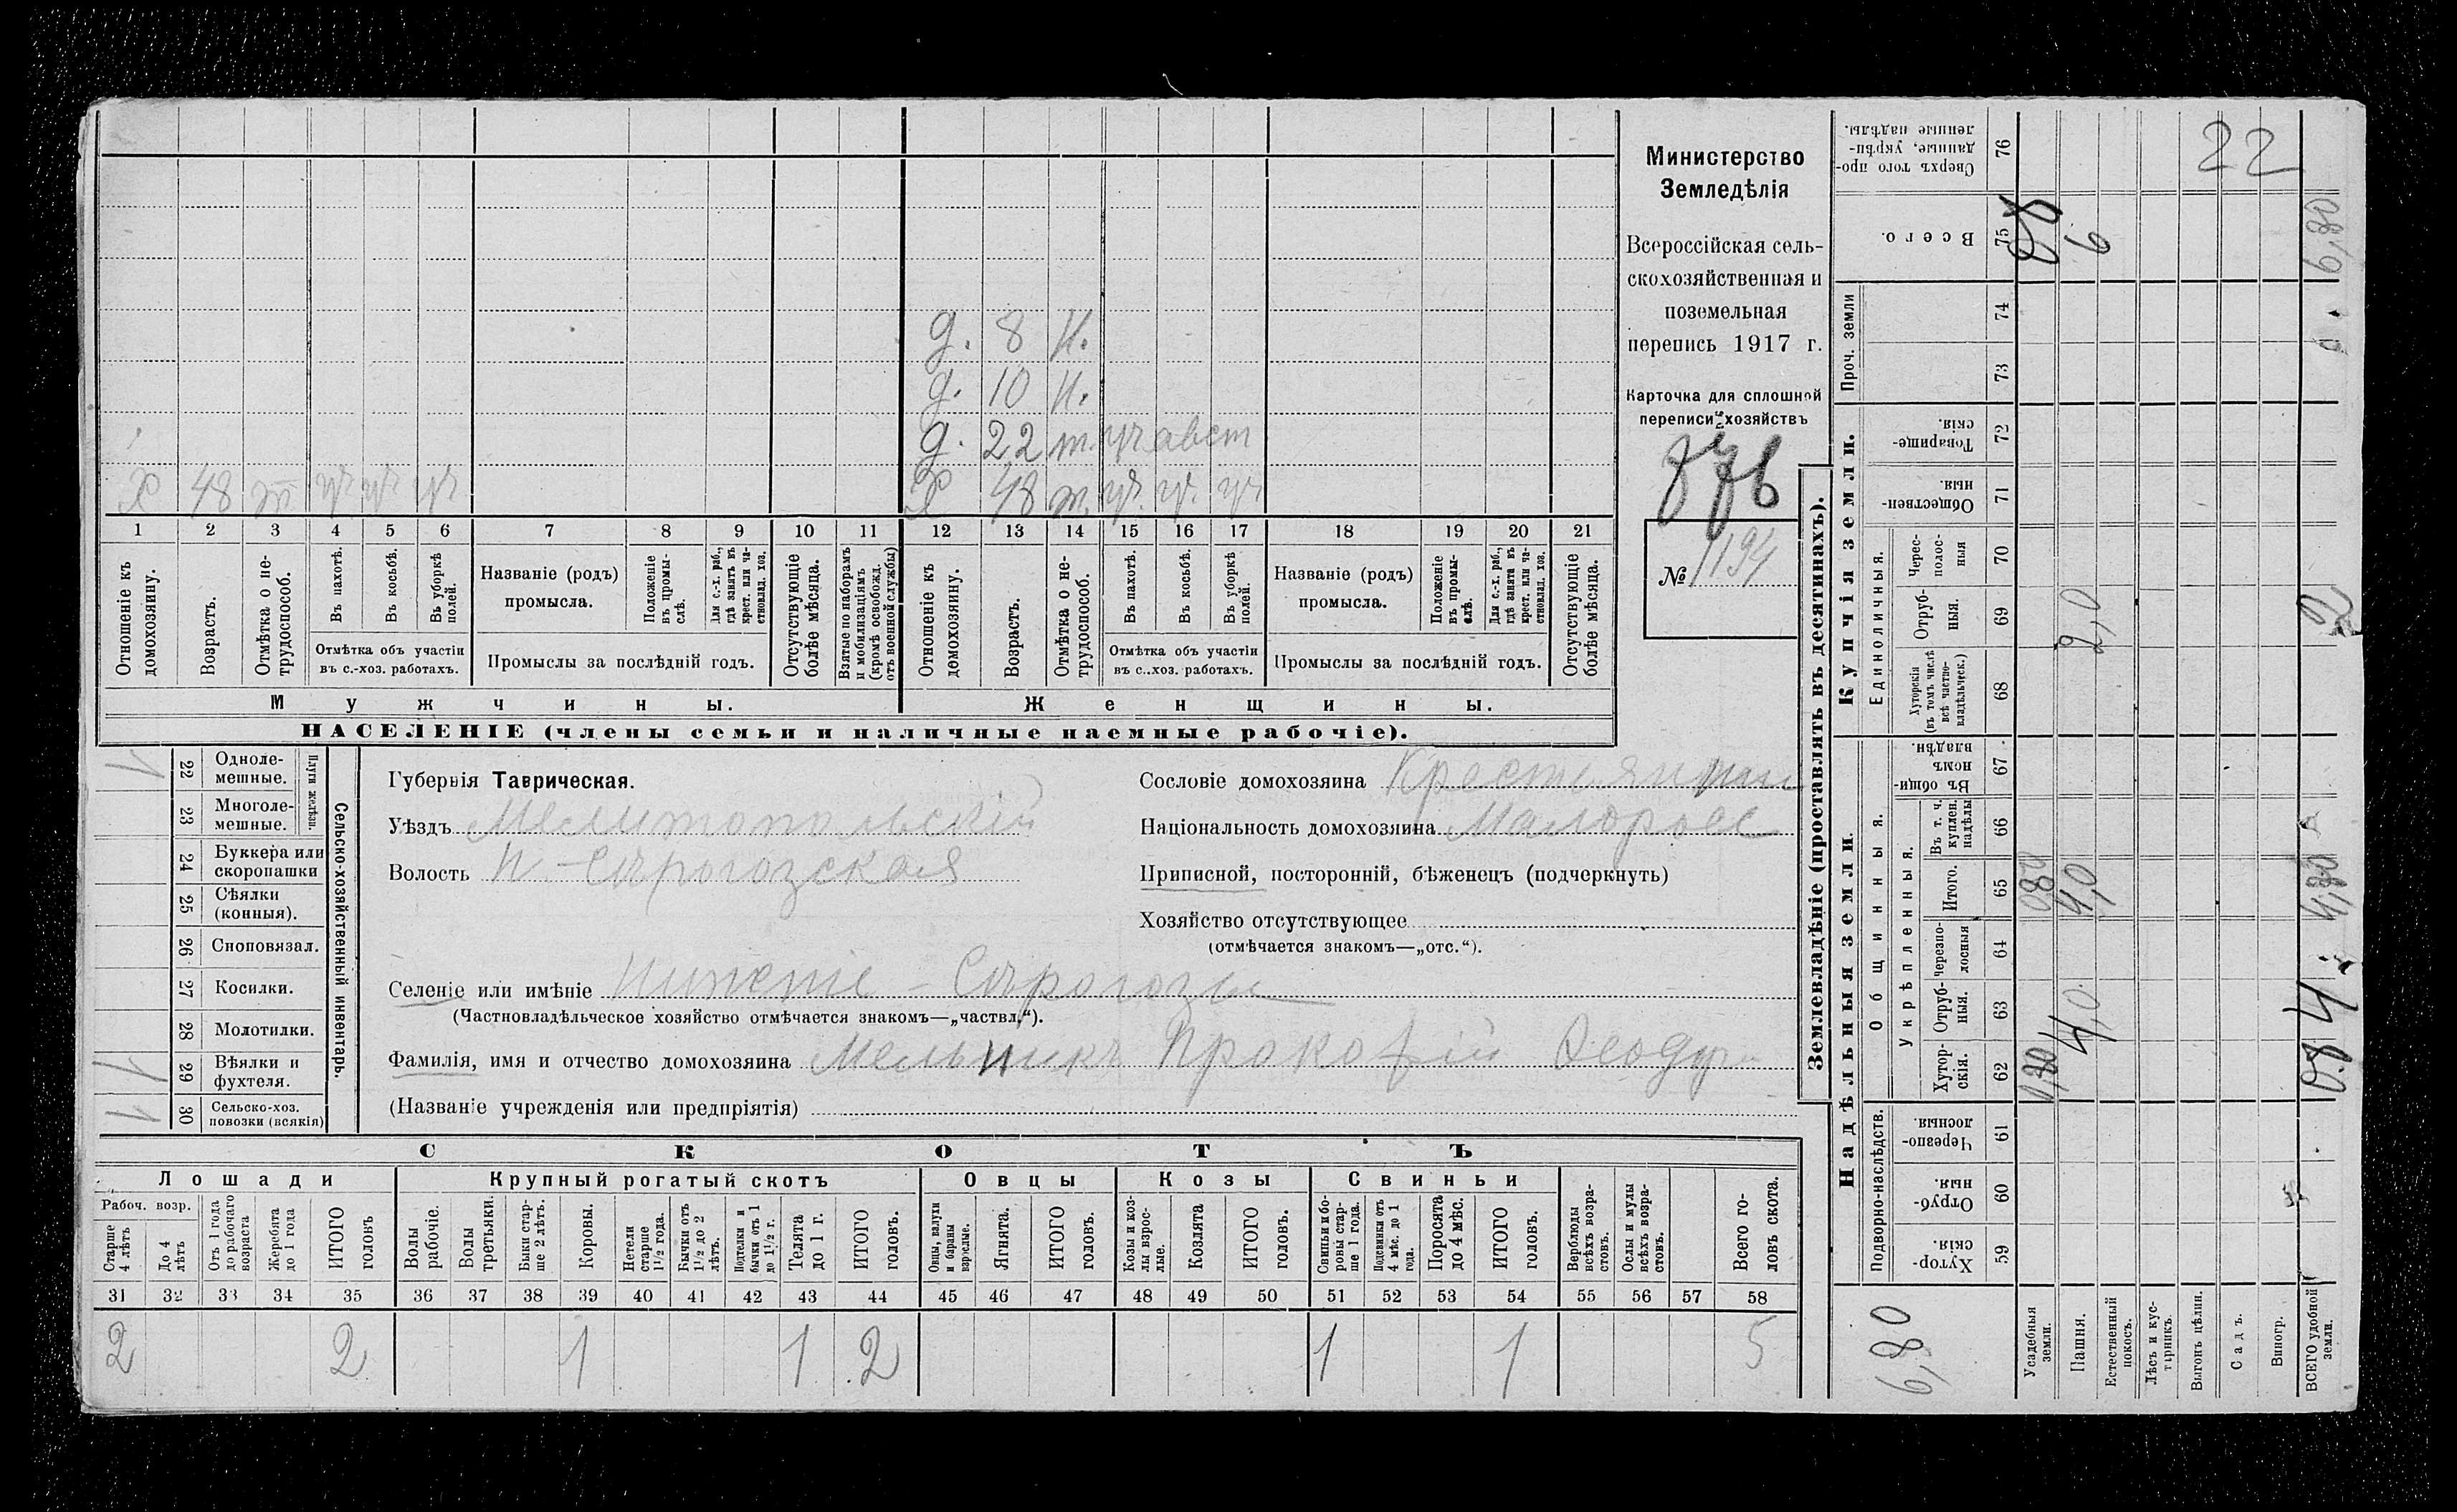 Министерство
Земледѣлія
Всероссійская сель-
скохозяйственная и
поземельная
перепись 1917 г.
Карточка для сплошной
переписи хозяйствъ
№ 1194
д. 8 н.
д. 10 н.
д. 22 т. уч авст
Х 48 т уч уч уч Х 48 т. уч. уч. уч
1 2 3 4 5 6 7 8 9 10 11 12 13 14 15 16 17 18 19 20 21
Отношеніе къ домохозяину.
Возрастъ.
Отмѣтка о не-трудоспособ.
Въ пахотѣ.
Въ косьбѣ.
Въ уборкѣ полей.
Отмѣтка объ участіи въ с.-хоз. работахъ.
Названіе (родъ) промысла.
Положеніе въ промы-слѣ.
Для с.-х. раб., гдѣ занятъ въ крест. или ча-стновлад. хоз.
Промыслы за послѣдній годъ.
Отсутствующіе болѣе мѣсяца.
Взятые по наборамъ и мобилизаціямъ (кромѣ освобожд. отъ военной службы)
Отношеніе къ домохозяину.
Возрастъ.
Отмѣтка о не-трудоспособ.
Въ пахотѣ.
Въ косьбѣ.
Въ уборкѣ полей.
Отмѣтка объ участіи въ с..хоз. работахъ.
Названіе (родъ) промысла.
Положеніе въ промы-слѣ.
Для с.-х. раб., гдѣ занята въ крест. или ча-стновлад. хоз.
Промыслы за послѣдній годъ.
Отсутствующіе болѣе мѣсяца.
Мужчины. Женщины.
НАСЕЛЕНІЕ (члены семьи и наличные наемные рабочіе).
Сельско-хозяйственный инвентарь.
Плуги желѣзн.
22 Одноле-мешные.
23 Многоле-мешные.
24 Буккера или скоропашки
25 Сѣялки (конныя).
26 Сноповязал.
27 Косилки.
28 Молотилки.
1 29 Вѣялки и фухтеля.
1 30 Сельско-хоз. повозки (всякія)
Губернія Таврическая.
Уѣздъ Мелитопольскій
Волость Н-Сѣрогозская
Селеніе или имѣніе Нижніе - Сѣрогозы
(Частновладѣльческое хозяйство отмѣчается знакомъ—„частвл.“).
Фамилія, имя и отчество домохозяина Мельникъ Прокофій
(Названіе учрежденія или предпріятія)
Сословіе домохозяина Крестьянин
Національность домохозяина Малоросс
Приписной, посторонній, бѣженецъ (подчеркнуть)
Хозяйство отсутствующее
(отмѣчается знакомъ—„отс.“).
СКОТЪ
Лошади Крупный рогатый скотъ Овцы Козы Свиньи
Рабоч. возр.
Старше 4 лѣтъ
До 4 лѣтъ
Отъ 1 года до рабочаго возраста
Жеребята до 1 года
ИТОГО головъ
Волы рабочіе.
Волы третьяки.
Быки стар-ше 2 лѣтъ.
Коровы.
Нетели старше 1½ года.
Бычки отъ 1½ до 2 лѣтъ.
Подтелки и бычки отъ 1 до 1½ г.
Телята до 1 г.
ИТОГО головъ.
Овцы, валухи и бараны взрослые.
Ягнята.
ИТОГО головъ.
Козы и коз-лы взрос-лые.
Козлята
ИТОГО головъ.
Свиньи и бо-ровы стар-ше 1 года.
Подсвинки отъ 4 мѣс. до 1 года.
Поросята до 4 мѣс.
ИТОГО головъ.
Верблюды всѣхъ возра-стовъ.
Ослы и мулы всѣхъ возра-стовъ.
Всего го-ловъ скота.
31 32 33 34 35 36 37 38 39 40 41 42 43 44 45 46 47 48 49 50 51 52 53 54 55 56 57 58
2 2 1 1 2 1 1 5
Землевладѣніе (проставлять въ десятинахъ).
Надѣльныя земли. Купчія земли.
Подворно-наслѣдств.
Общинныя.
Укрѣпленныя.
Единоличныя.
Проч. земли
59 Хутор-скія.
60 Отруб-ныя.
61 Черезпо-лосныя
62 Хутор-скія.
63 Отруб-ныя.
64 Черезпо-лосныя
65 Итого.
66 Въ т. ч. куплен. надѣлы
67 Въ общи-номъ владѣн.
68 Хуторскія (въ томъ числѣ всѣ частно-владѣльческ.)
69 Отруб-ныя.
70 Черес-полос-ныя
71 Обществен-ныя.
72 Товарище-скія.
73
74
75 Всего.
76 Сверхъ того про-данные, укрѣп-ленные надѣлы.
Усадебныя земли.
Пашня.
Естественный покосъ.
Лѣсъ и кус-тарникъ.
Выгонъ цѣлин.
Садъ.
Виногр.
ВСЕГО удобной земли.
6,80
0,80
4,0
0,80
4,0
2,0
6
22
0.8
4
4,80
2
6,80